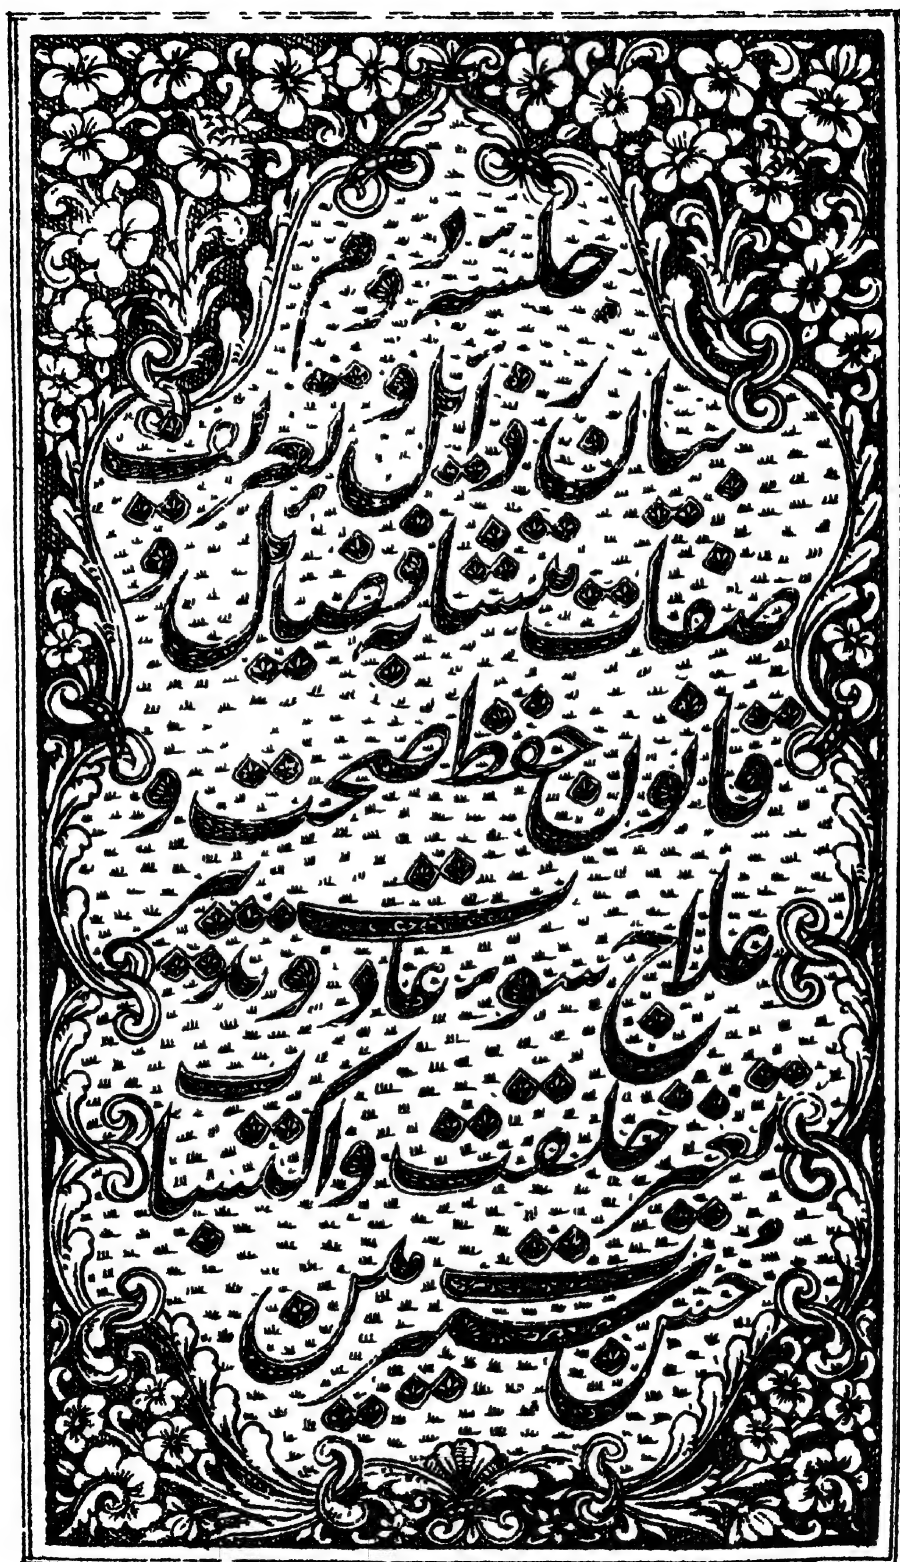 جلسہ دوم
بیان رذائل و تعریف
صفات متشابہ فضایل و
قانون حفظ صحت و
علاج سوء عادت و تدبیر
تغییر خلقت و اکتساب
حسن سیرت میں